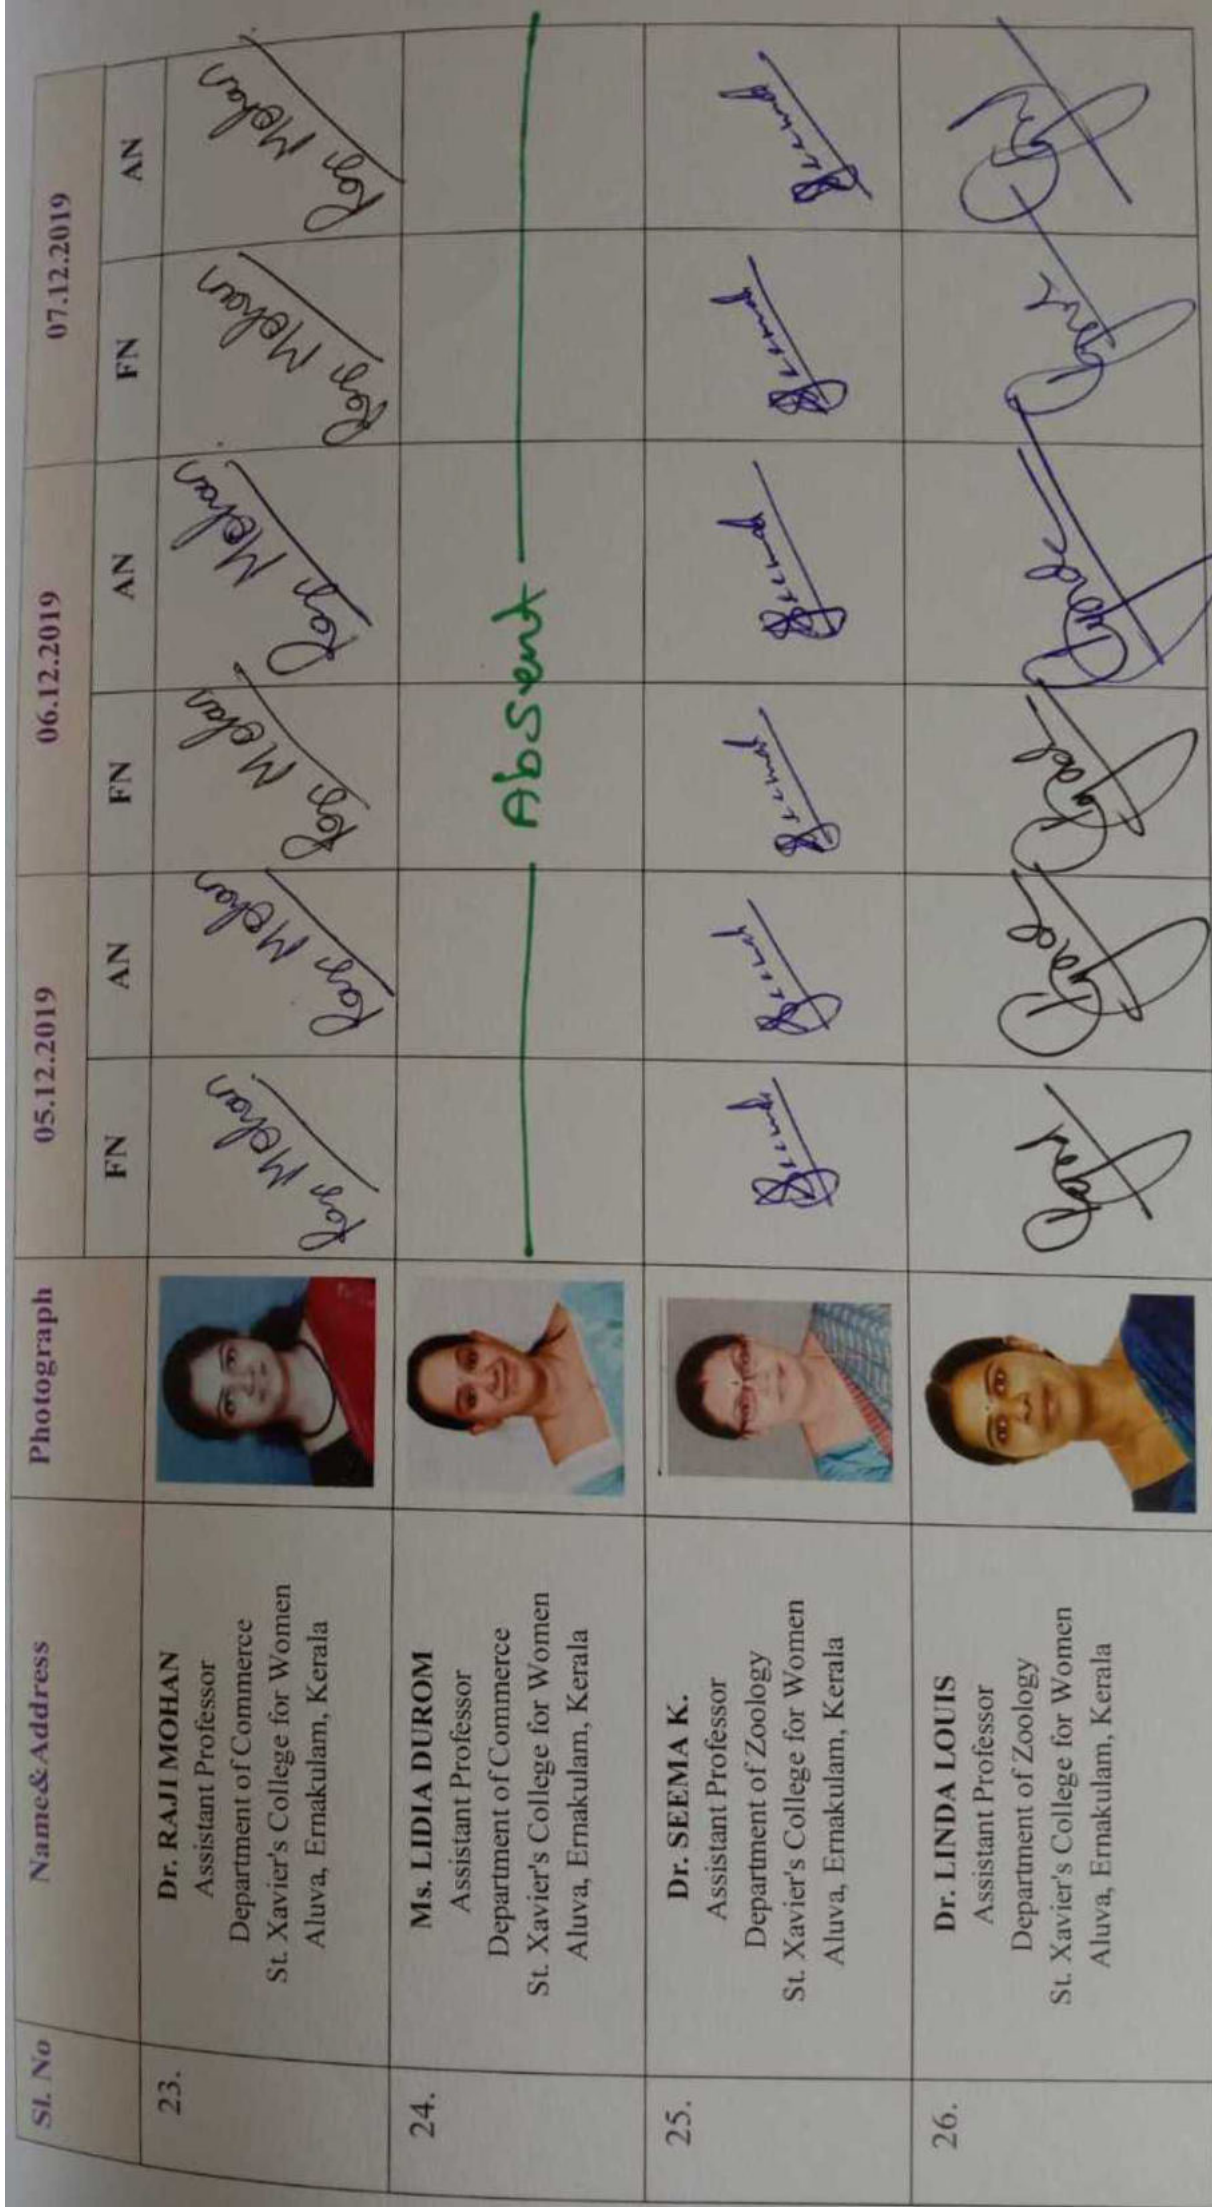 Sl. No Name&Address Photograph 05.12.2019 06.12.2019 07.12.2019
FN AN FN AN FN AN
23.
Dr. RAJI MOHAN
Assistant Professor
Department of Commerce
St. Xavier's College for Women
Aluva, Ernakulam, Kerala
Raji Mohan Raji Mohan Raji Mohan Raji Mohan Raji Mohan Raji Mohan
24.
Ms. LIDIA DUROM
Assistant Professor
Department of Commerce
St. Xavier's College for Women
Aluva, Ernakulam, Kerala
Absent
25.
Dr. SEEMA K.
Assistant Professor
Department of Zoology
St. Xavier's College for Women
Aluva, Ernakulam, Kerala
Seema Seema Seema Seema Seema Seema
26.
Dr. LINDA LOUIS
Assistant Professor
Department of Zoology
St. Xavier's College for Women
Aluva, Ernakulam, Kerala